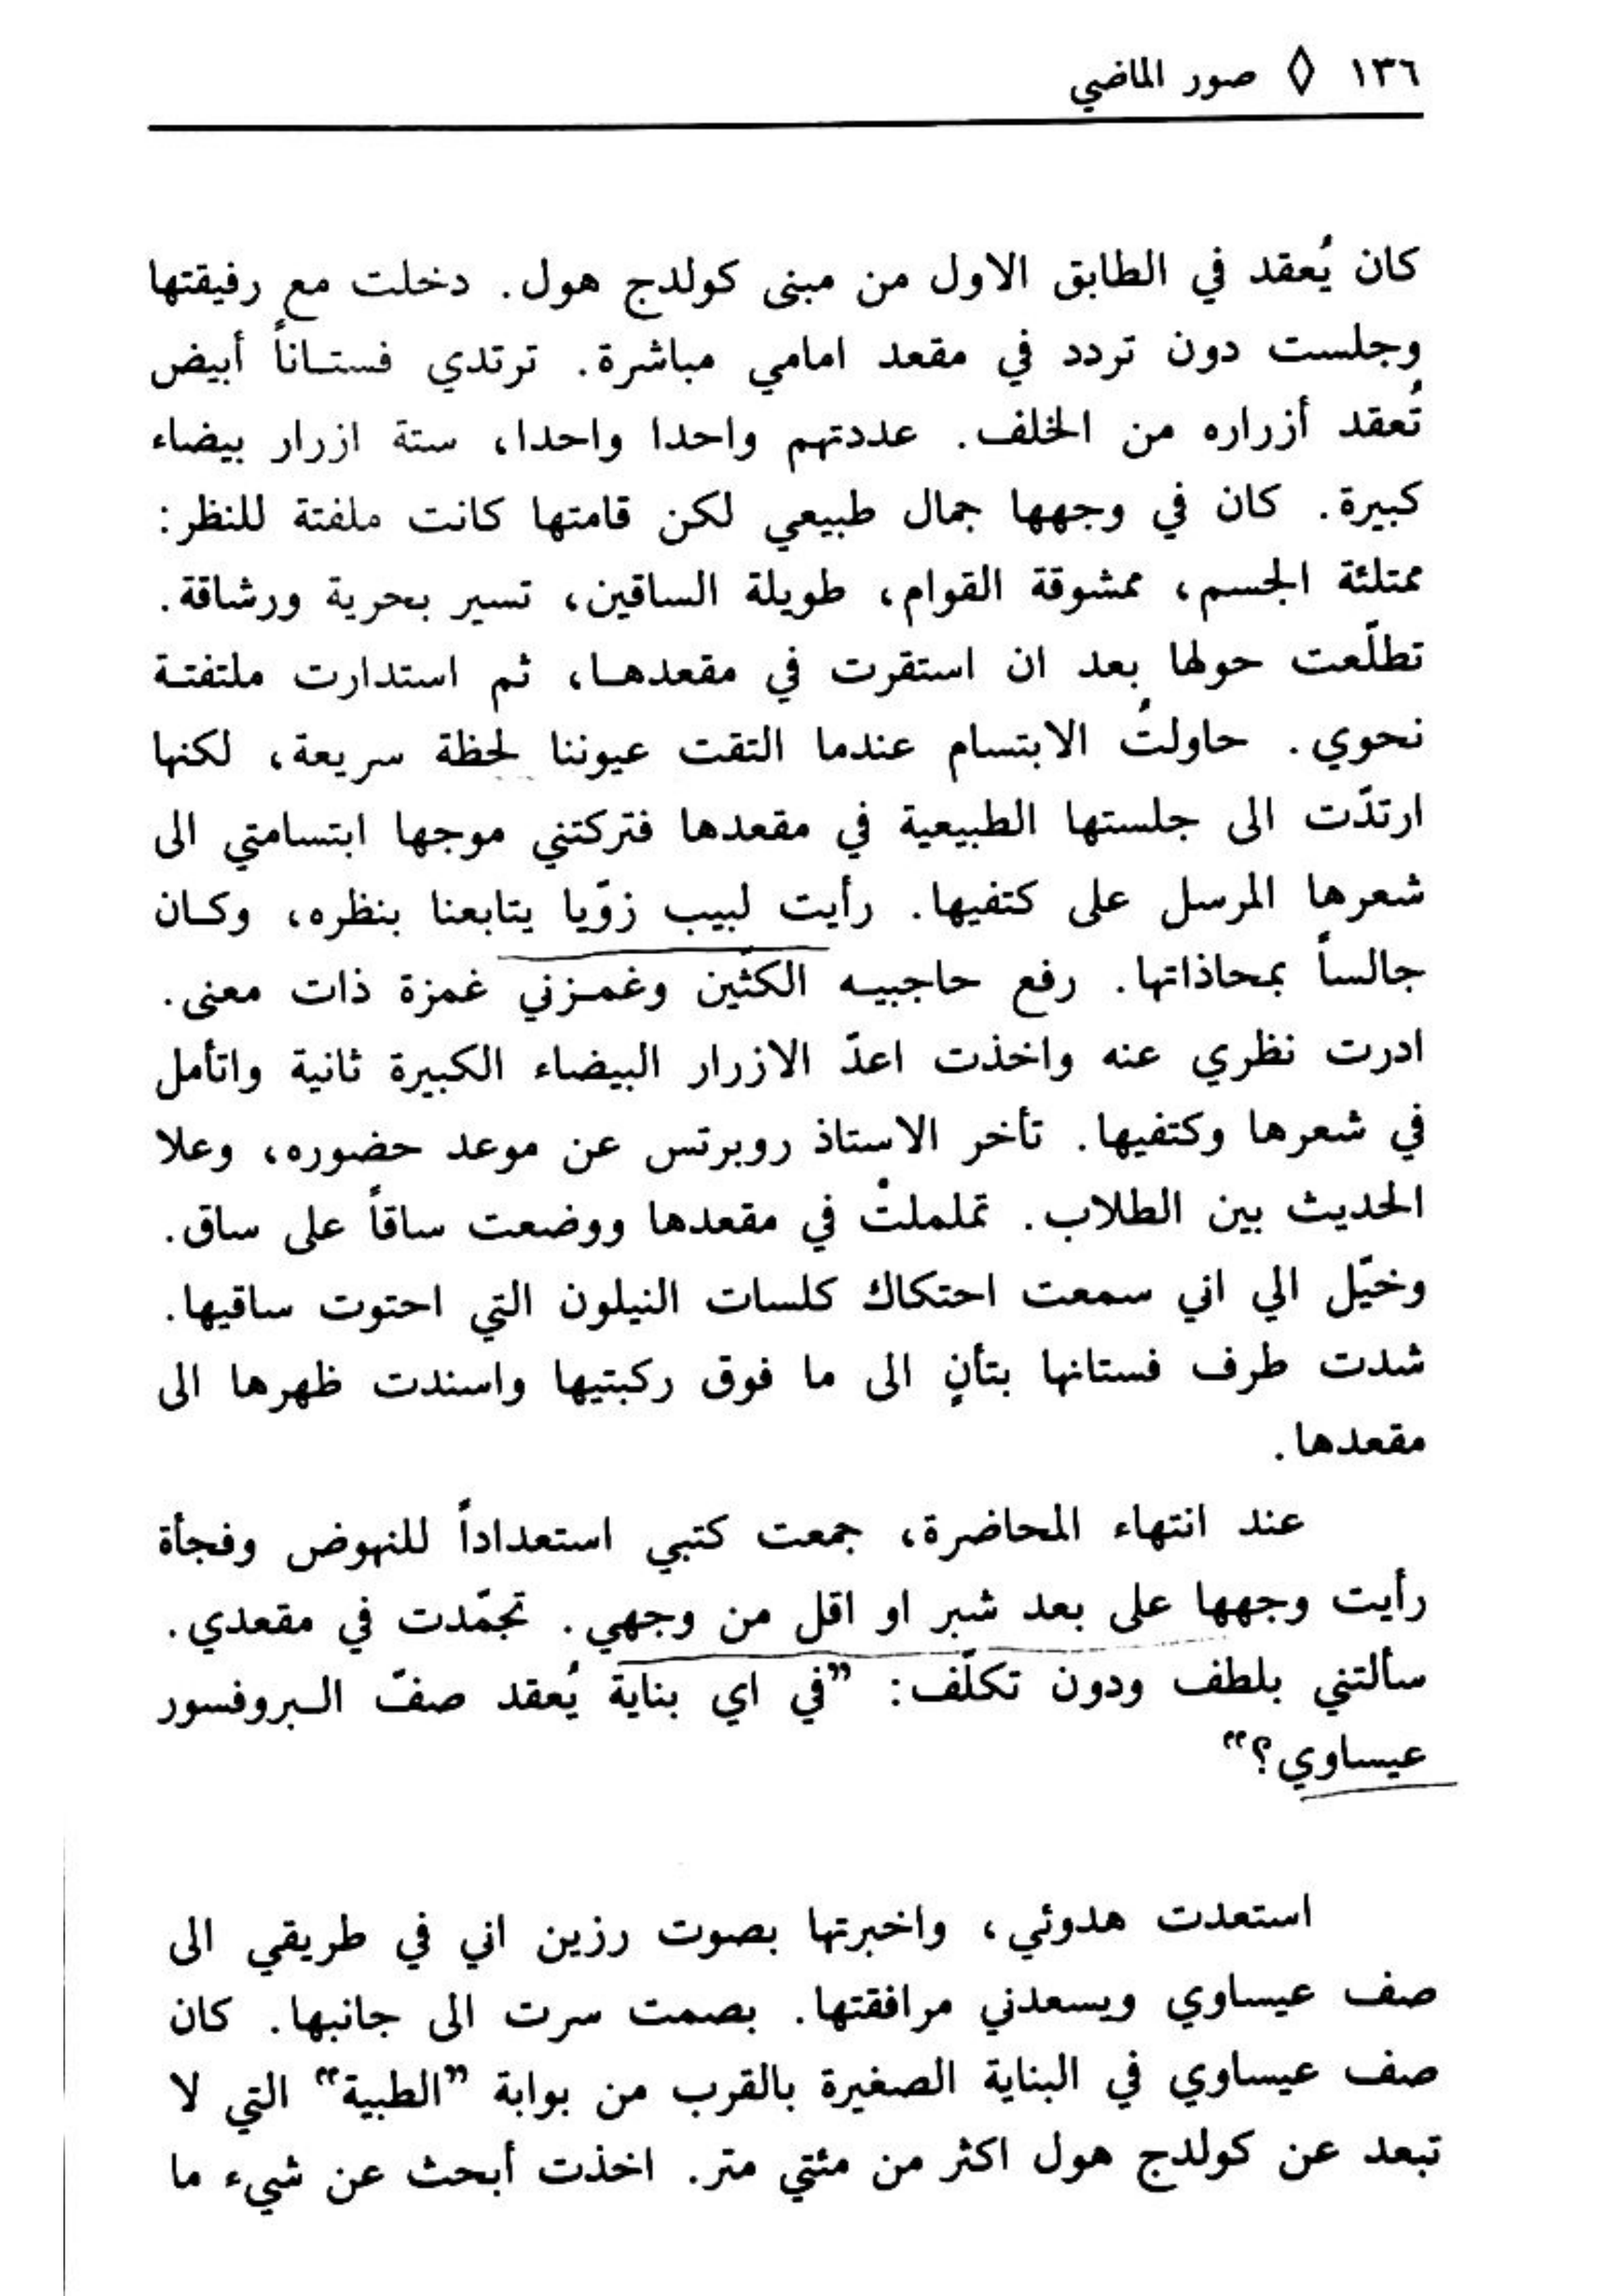 ١٣٦ ◊ صور الماضي
كان يُعقد في الطابق الاول من مبنى كولدج هول. دخلت مع رفيقتها
وجلست دون تردد في مقعد امامي مباشرة. ترتدي فستاناً أبيض
تُعقد أزراره من الخلف. عددتهم واحدا واحدا، ستة ازرار بيضاء
كبيرة. كان في وجهها جمال طبيعي لكن قامتها كانت ملفتة للنظر:
ممتلئة الجسم، ممشوقة القوام، طويلة الساقين، تسير بحرية ورشاقة.
تطلّعت حولها بعد ان استقرت في مقعدها، ثم استدارت ملتفتة
نحوي. حاولتُ الابتسام عندما التقت عيوننا لحظة سريعة، لكنها
ارتدّت الى جلستها الطبيعية في مقعدها فتركتني موجها ابتسامتي الى
شعرها المرسل على كتفيها. رأيت لبيب زوّيا يتابعنا بنظره، وكان
جالساً بمحاذاتها. رفع حاجبيه الكثّين وغمزني غمزة ذات معنى.
ادرت نظري عنه واخذت اعدّ الازرار البيضاء الكبيرة ثانية واتأمل
في شعرها وكتفيها. تأخر الاستاذ روبرتس عن موعد حضوره، وعلا
الحديث بين الطلاب. تململتْ في مقعدها ووضعت ساقاً على ساق.
وخيّل الي اني سمعت احتكاك كلسات النيلون التي احتوت ساقيها.
شدت طرف فستانها بتأنٍ الى ما فوق ركبتيها واسندت ظهرها الى
مقعدها.
عند انتهاء المحاضرة، جمعت كتبي استعداداً للنهوض وفجأة
رأيت وجهها على بعد شبر او اقل من وجهي. تجمّدت في مقعدي.
سألتني بلطف ودون تكلّف: ”في اي بناية يُعقد صفّ البروفسور
عيساوي؟“
استعدت هدوئي، واخبرتها بصوت رزين اني في طريقي الى
صف عيساوي ويسعدني مرافقتها. بصمت سرت الى جانبها. كان
صف عيساوي في البناية الصغيرة بالقرب من بوابة ”الطبية“ التي لا
تبعد عن كولدج هول اكثر من مئتي متر. اخذت أبحث عن شيء ما